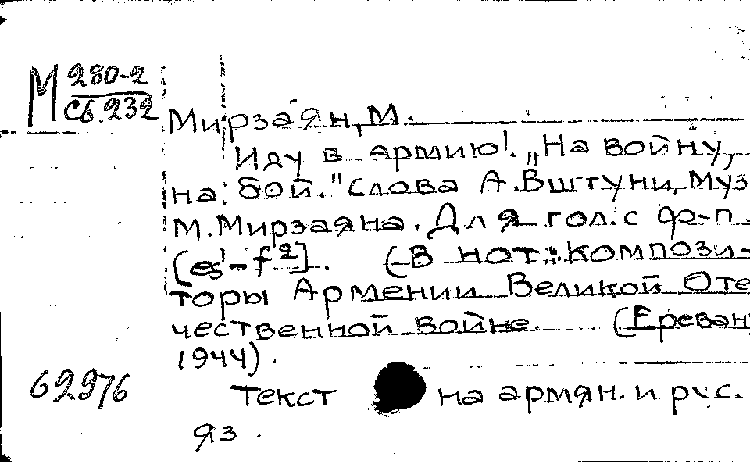 М 280-2
Сб.232
Мирзаян, М.
Иду в армию! „На войну,
на бой." Слова А.Вштуни, Муз
М.Мирзаяна. Для гол. с ф-п.
[es¹-f²]. (-В нот.: Компози-
торы Армении Великой Оте
чественной войне. (Ереван,
1944).
Текст на армян. и рус.
яз.
62976